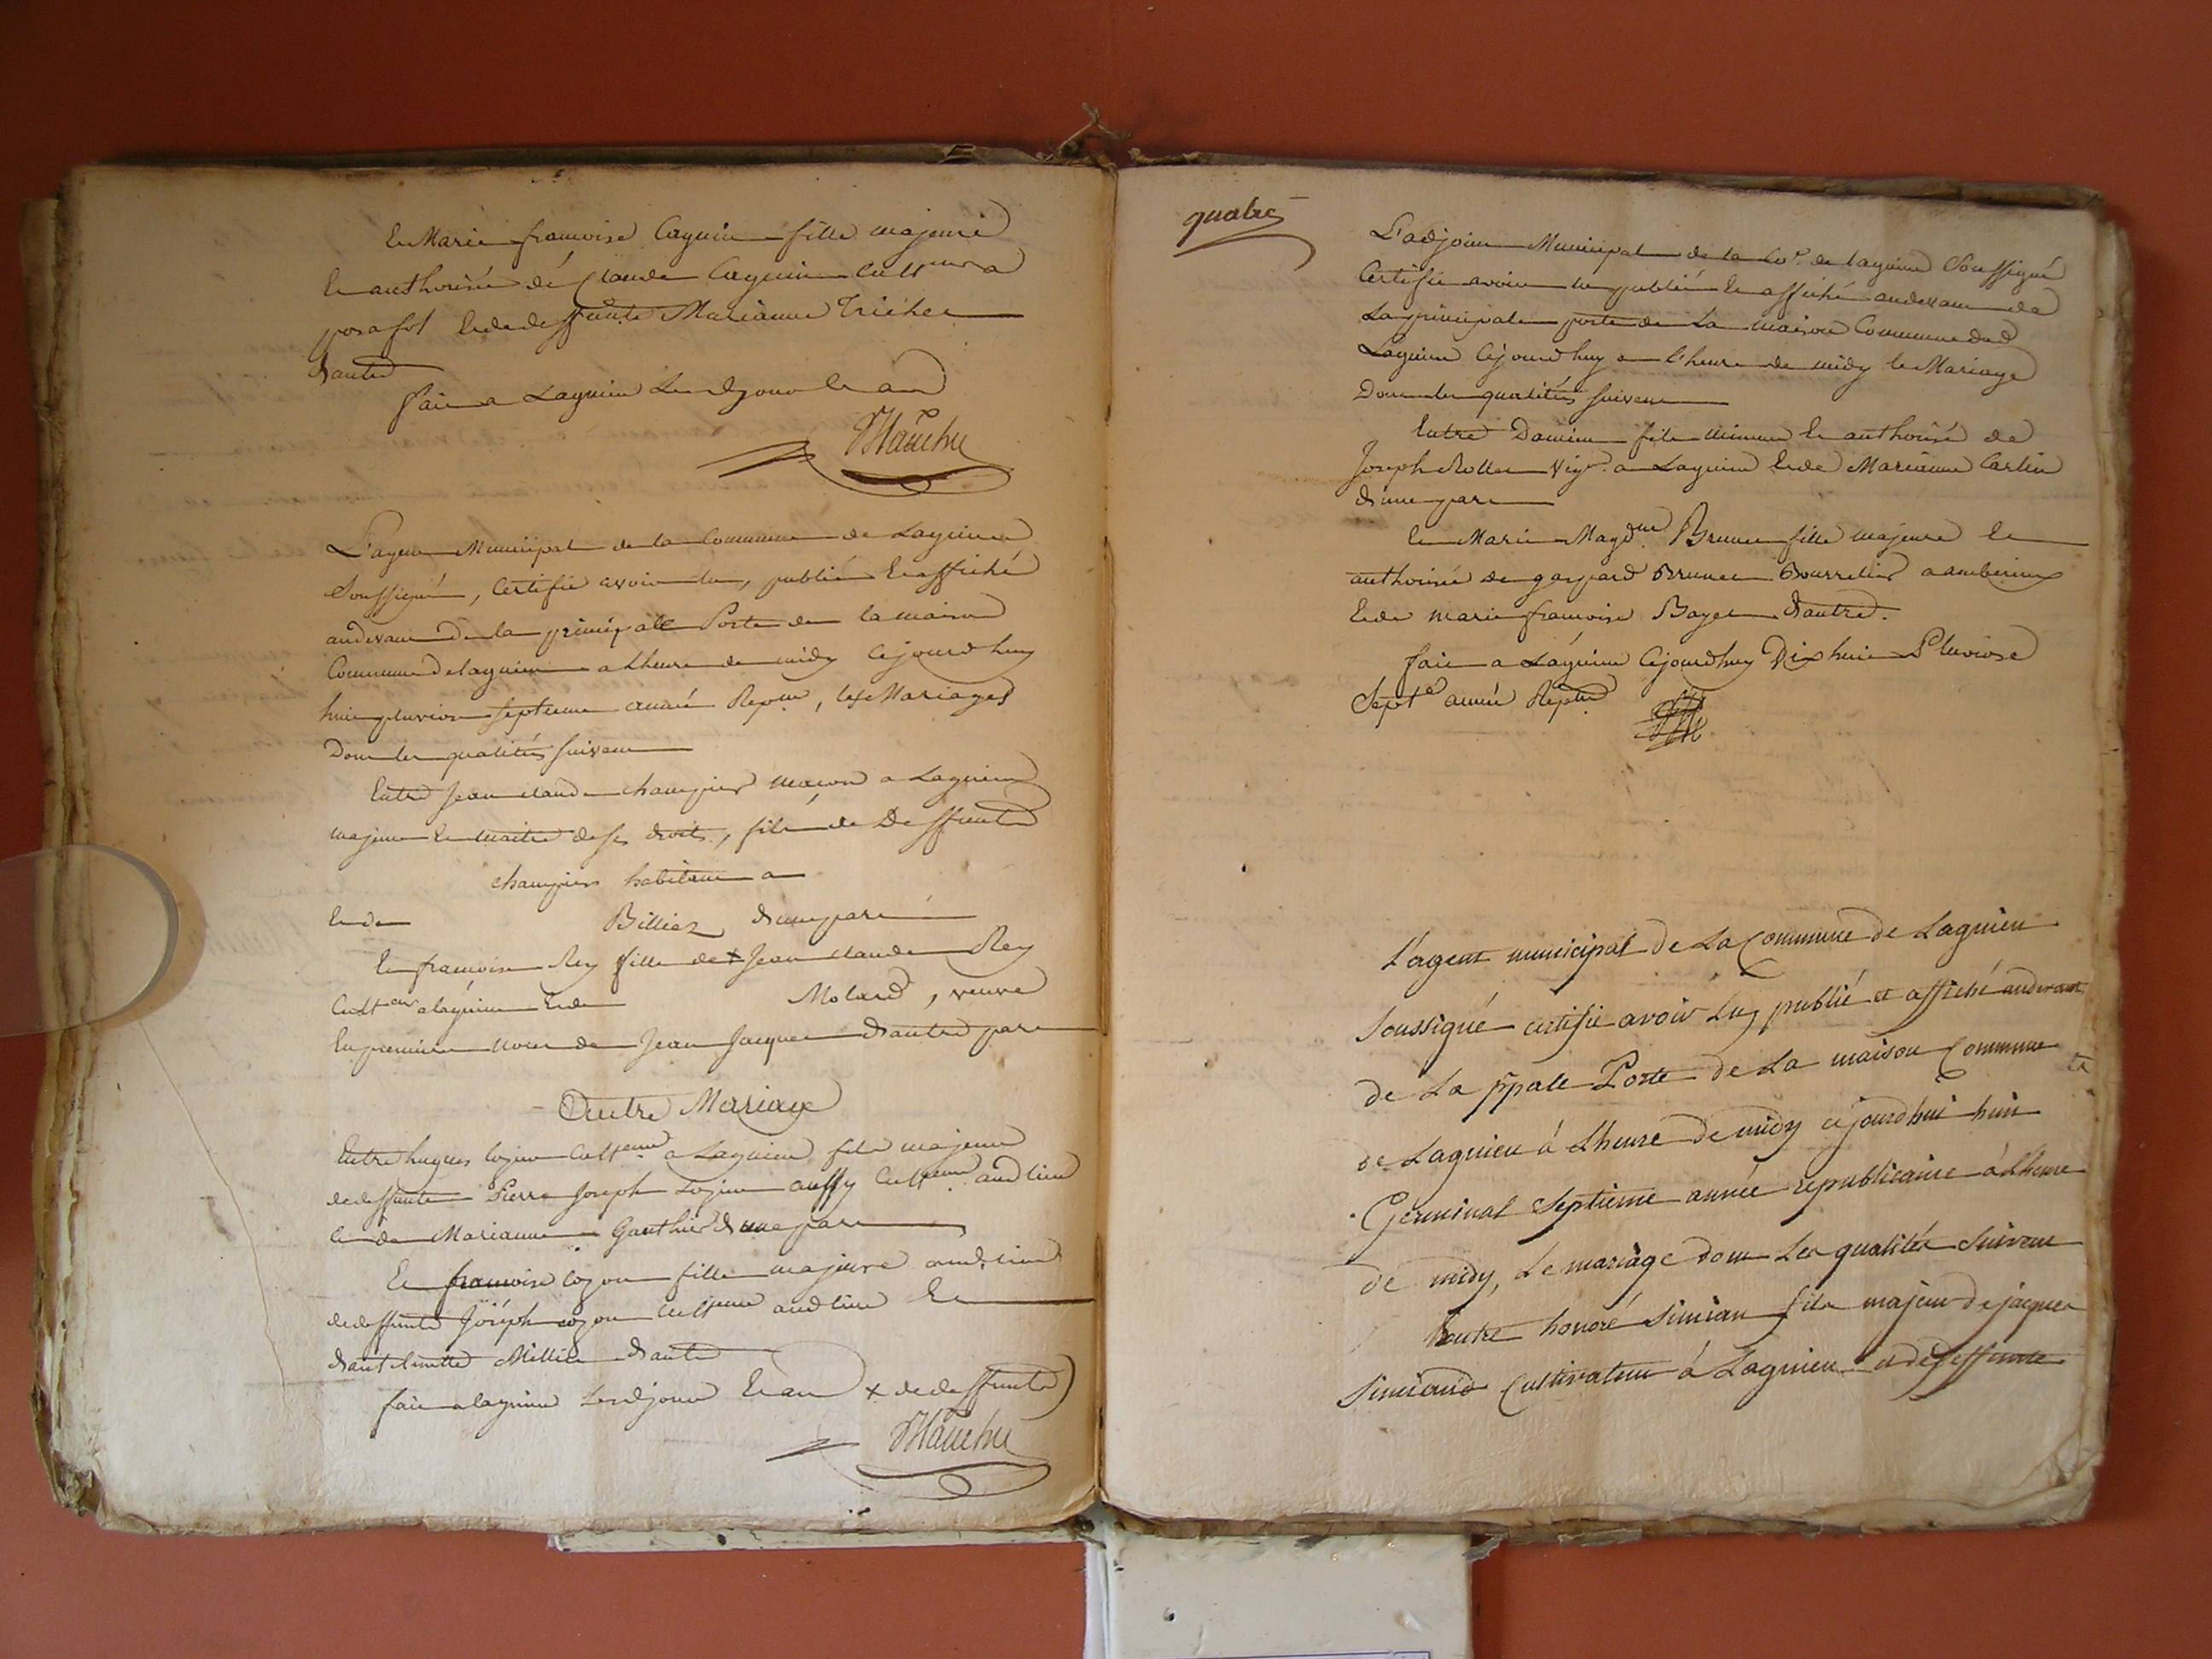 Et Marie françoise Cagnin fille majeure
et authorisée de Claude Cagnin Cultteur a
posafol et de deffunte Marianne Trichet
d'autre
fait a Lagnieu Lesd jour et an
L'agent Municipal de la Commune de Lagnieu
Soussigné, Certifie avoir lu, publié et affiché
audevant De la principale Porte de la maison
Commune de lagnieu a Lheure de midy Cejourdhuy
huit pluviose septieme année Repne, les Mariages
Dont les qualités suivent
Entre Jean claude champier macon a Lagnieu
majeur et maitre de ses droits, fils de Deffunt
champier habitant a
et de Billiez d'une part
Et françoise Rey fille de + Jean claude Rey
Cultteur a lagnieu et de Molard, veuve
En premiere noces de Jean Jacques d'autre part
Autre Mariage
Entre hugues Cultteur a Lagnieu fils majeur
de deffunt Pierre Joseph aussy Cultteur aud lieu
et de Marianne Gauthier d'une part
Et françoise cozon fille majeure aud. lieu
de deffunt Joseph cozon Cultteur aud lieu Et
d'anthelmette Millier d'autre
fait a lagnieu Lesd jour et an + de deffunte)
quatre
L'adjoint Municipal de la Cne de lagnieu Soussigné
Certifie avoir lu publié et affiché audevant de
La principale porte de La maison Commune de
Lagnieu Cejourdhuy a l'heure de midy le Mariage
Dont les qualités suivent
Entre Damien fils mineur et authorisé de
Joseph Rollet Vigr. a Lagnieu et de Marianne Carlin
d'une part
Et Marie Magdne Brunet fille majeure et
authorisée de gaspard Brunet Bourrelier a amberieux
et de marie françoise Bayet d'autre.
fait a Lagnieu Cejourdhuy Dix huit Pluviose
Septe année Repne
L'agent municipal de La Commune de Lagnieu
Soussigné certifie avoir Lu, publié et affiché audevant
de La ppale Porte de La maison Commune
de Lagnieu à L'heure de midy cejourdhui huit
Germinal Septième année republicaine à L'heure
de midy, Le mariage dont Les qualités suivent
Entre honoré Simian fils majeur de jacques
Simiand Cultivateur à Lagnieu et de deffunte